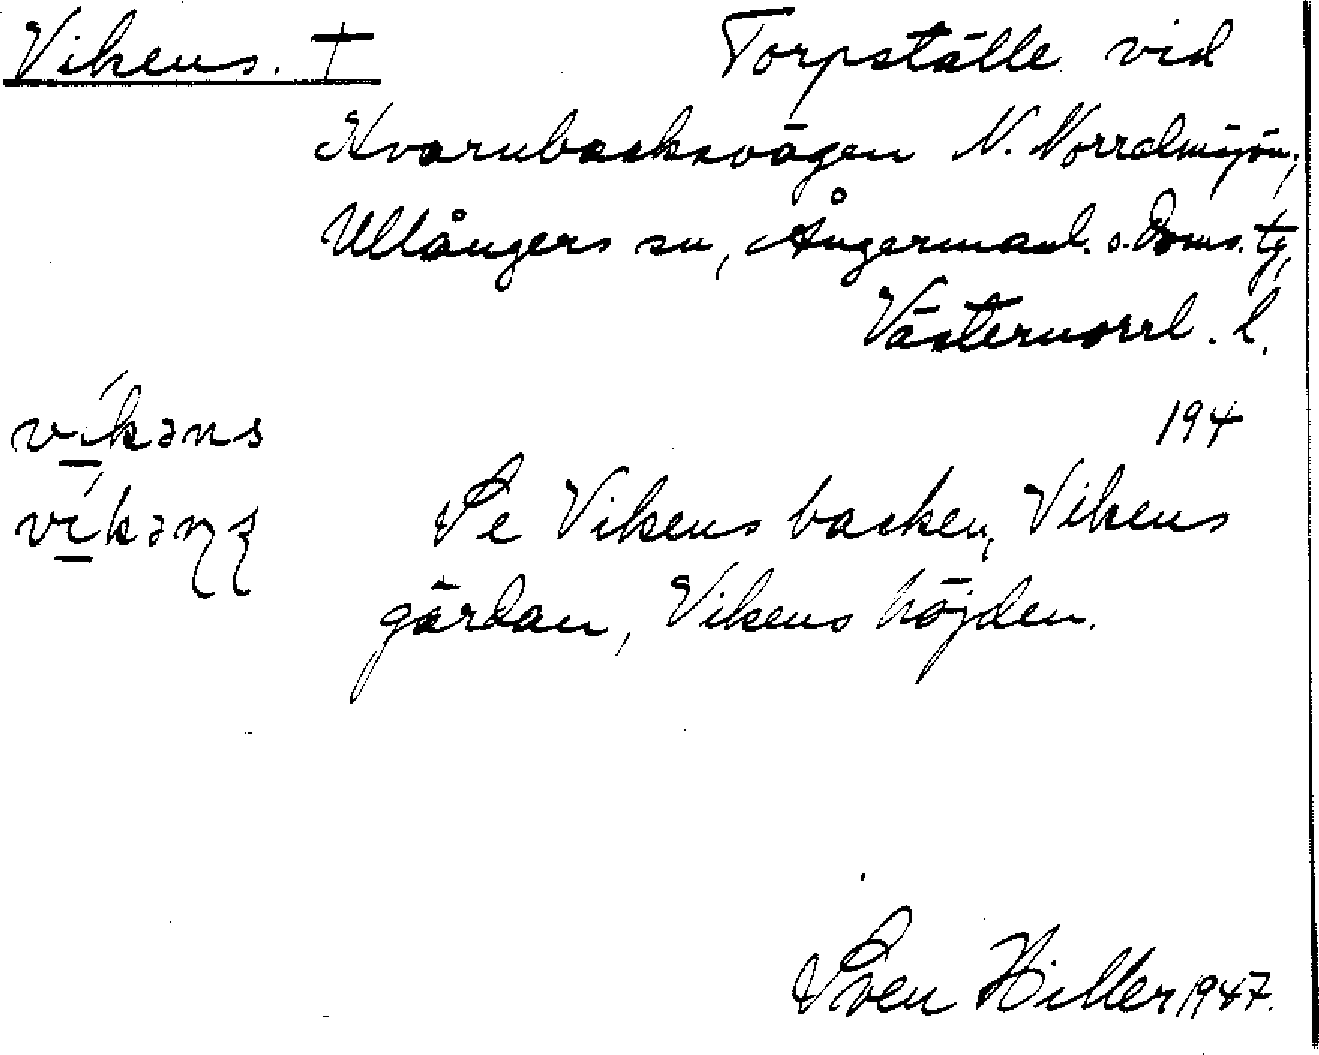 Vikens. † Torpställe vid
Kvarnbacksvägen N. Norrdmsjön,
Ullångers sn, Ångermanl. s. Doms. tg,
Västernorrl. l.
víkəns 194
víkəɳʂ Se Vikens backen, Vikens
gärdan, Vikens höjden.
Sven Hiller 1947.